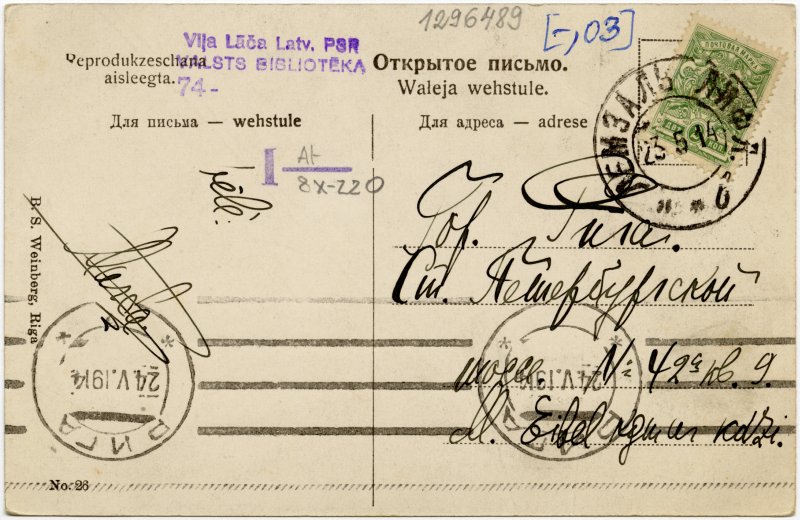 1296489
[-,03]
Viļa Lāča Latv. PSR
VALSTS BIBLIOTĒKA
74-
Reprodukzeschana
aisleegta.
Открытое письмо.
Waleja wehstule.
ПОЧТОВАЯ МАРКА
Для письма — wehstule
Для адреса — adrese
ЛЕМЗАЛЬ ЛИФЛ.
23 5 14
I At
8X-220
Гор. Рига.
Ст. Петербургской
шоссе. № 42а кв. 9.
M. Eifel
B. S. Weinberg, Riga
24.V.1914
РИГА
24.V.1914
РИГА
No. 26